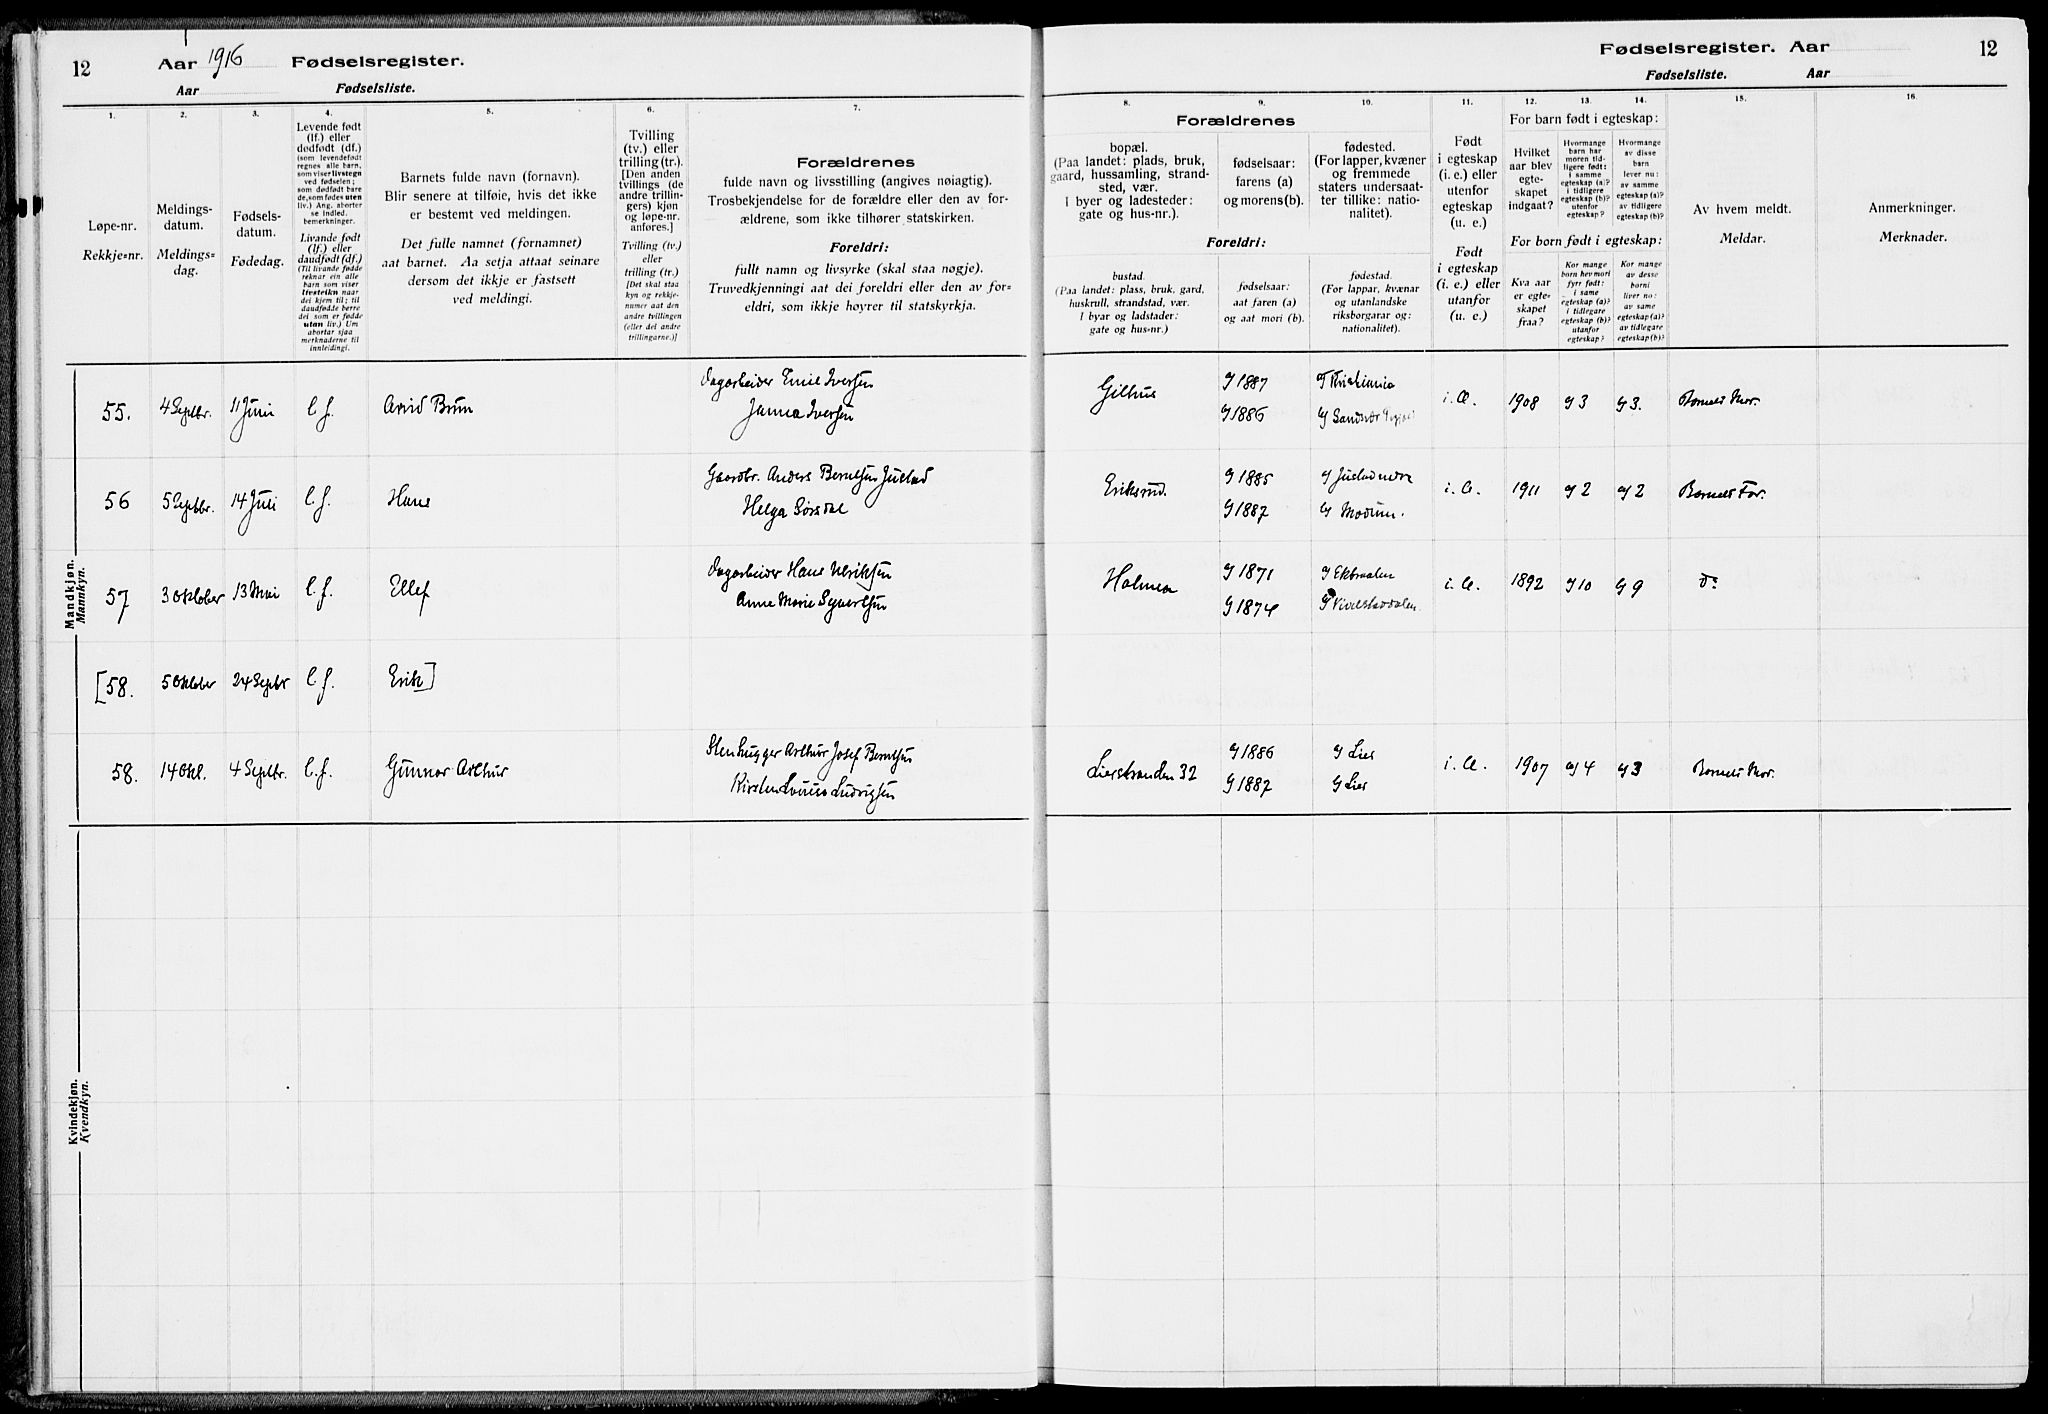 12
Aar 1916 Fødselsregister.
Aar Fødselsliste.
1.
2.
3.
4.
5.
6.
7.
Løpe-nr.
Rekkje=nr.
Meldings-
datum.
Meldings=
dag.
Fødsels-
datum.
Fødedag.
Levende født
(lf.) eller
dødfødt (df.)
(som levendefødt
regnes alle barn,
som viser livstegn
ved fødselen;
som dødfødt bare
de, som fødes uten
liv.) Ang. aborter
se indled.
bemerkninger.
Livande født
(lf.) eller
daudfødt (df.)
(Til livande fødde
reknar ein alle
barn som viser
livsteikn naar
dei kjem til; til
daudfødde berre
dei som er fødde
utan liv.) Um
abortar sjaa
merknaderne til
innleidingi.
Barnets fulde navn (fornavn).
Blir senere at tilføie, hvis det ikke
er bestemt ved meldingen.
Det fulle namnet (fornamnet)
aat barnet. Aa setja attaat seinare
dersom det ikkje er fastsett
ved meldingi.
Tvilling
(tv.) eller
trilling (tr.).
[Den anden
tvillings (de
andre trillin-
gers) kjøn
og løpe-nr.
anføres.]
Tvilling (tv.)
eller
trilling (tr.)
[Det skal staa
kyn og rekkje-
numer aat den
andre tvillingen
(eller dei andre
trillingarne.)]
Forældrenes
fulde navn og livsstilling (angives nøiagtig).
Trosbekjendelse for de forældre eller den av for-
ældrene, som ikke tilhører statskirken.
Foreldri:
fullt namn og livsyrke (skal staa nøgje).
Truvedkjenningi aat dei foreldri eller den av for=
eldri, som ikkje høyrer til statskyrkja.
Mandkjøn.
Mannkyn.
55. 4 Septbr. 11 Juni l. f. Arvid Brun
Dagarbeider Emil Iversen
Janna Iversen
56 5 Septbr. 14 Juli l. f. Hans
Gaardbr. Anders Berntsen Justad
Helga Sørsdal
57 3 Oktober 13 Mai l. f. Ellef
Dagarbeider Hans Ulriksen
Anne Marie Syvertsen
[58. 5 Oktober 24 Septbr l. f. Erik]
58. 14 Okt. 4 Septbr. l. f. Gunnar Arthur
Stenhugger Arthur Josef Berntsen
Kirsten Lovisa Ludvigsen
Kvindekjøn.
Kvendkyn.
Fødselsregister. Aar
12
Fødselsliste. Aar
8.
9.
10.
11.
12.
13.
14.
15.
16.
Forældrenes
bopæl.
(Paa landet: plads, bruk,
gaard, hussamling, strand-
sted, vær.
I byer og ladesteder:
gate og hus-nr.).
fødselsaar:
farens (a)
og morens (b).
fødested.
(For lapper, kvæner
og fremmede
staters undersaat-
ter tillike: natio-
nalitet).
Foreldri:
bustad.
(Paa landet: plass, bruk, gard,
huskrull, strandstad, vær.
I byar og ladstader:
gate og hus-nr.)
fødselsaar:
aat faren (a)
og aat mori (b).
fødestad.
(For lappar, kvænar
og utanlandske
riksborgarar og:
nationalitet).
Født
i egteskap
(i. e.) eller
utenfor
egteskap
(u. e.)
Født
i egteskap
(i. e.) eller
utanfor
(u. e.)
For barn født i egteskap:
Hvilket
aar blev
egte-
skapet
indgaat?
Hvormange
barn har
moren tid-
ligere født:
i samme
egteskap (a)?
i tidligere
egteskap (b)?
utenfor
egteskap?
Hvormange
av disse
barn
lever nu:
av samme
egteskap (a)?
av tidligere
egteskap (b)?
For born født i egteskap:
Kva aar
er egte-
skapet
fraa?
Kor mange
born hev mori
fyrr født:
i same
egteskap (a)?
i tidlegare
egteskap (b)?
utanfor
egteskap?
Kor mange
av desse
borni
liver no:
av same
egteskap (a)?
av tidlegare
egteskap (b)?
Av hvem meldt.
Meldar.
Anmerkninger.
Merknader.
Gilhus a) 1887 a) Kristiania i. e. 1908 a) 3 a) 3. Barnets Mor.
b) 1886 b) Sandsvær
Eriksrud. a) 1885 a) Justad nedre i. e. 1911 a) 2 a) 2 Barnets Far.
b) 1887 b) Modum.
Holmen a) 1871 a) i. e. 1892 a) 10 a) 9 do
b) 1874 b)
Lierstranden 32 a) 1886 a) Lier i. e. 1907 a) 4 a) 3 Barnets Mor.
b) 1887 b) Lier